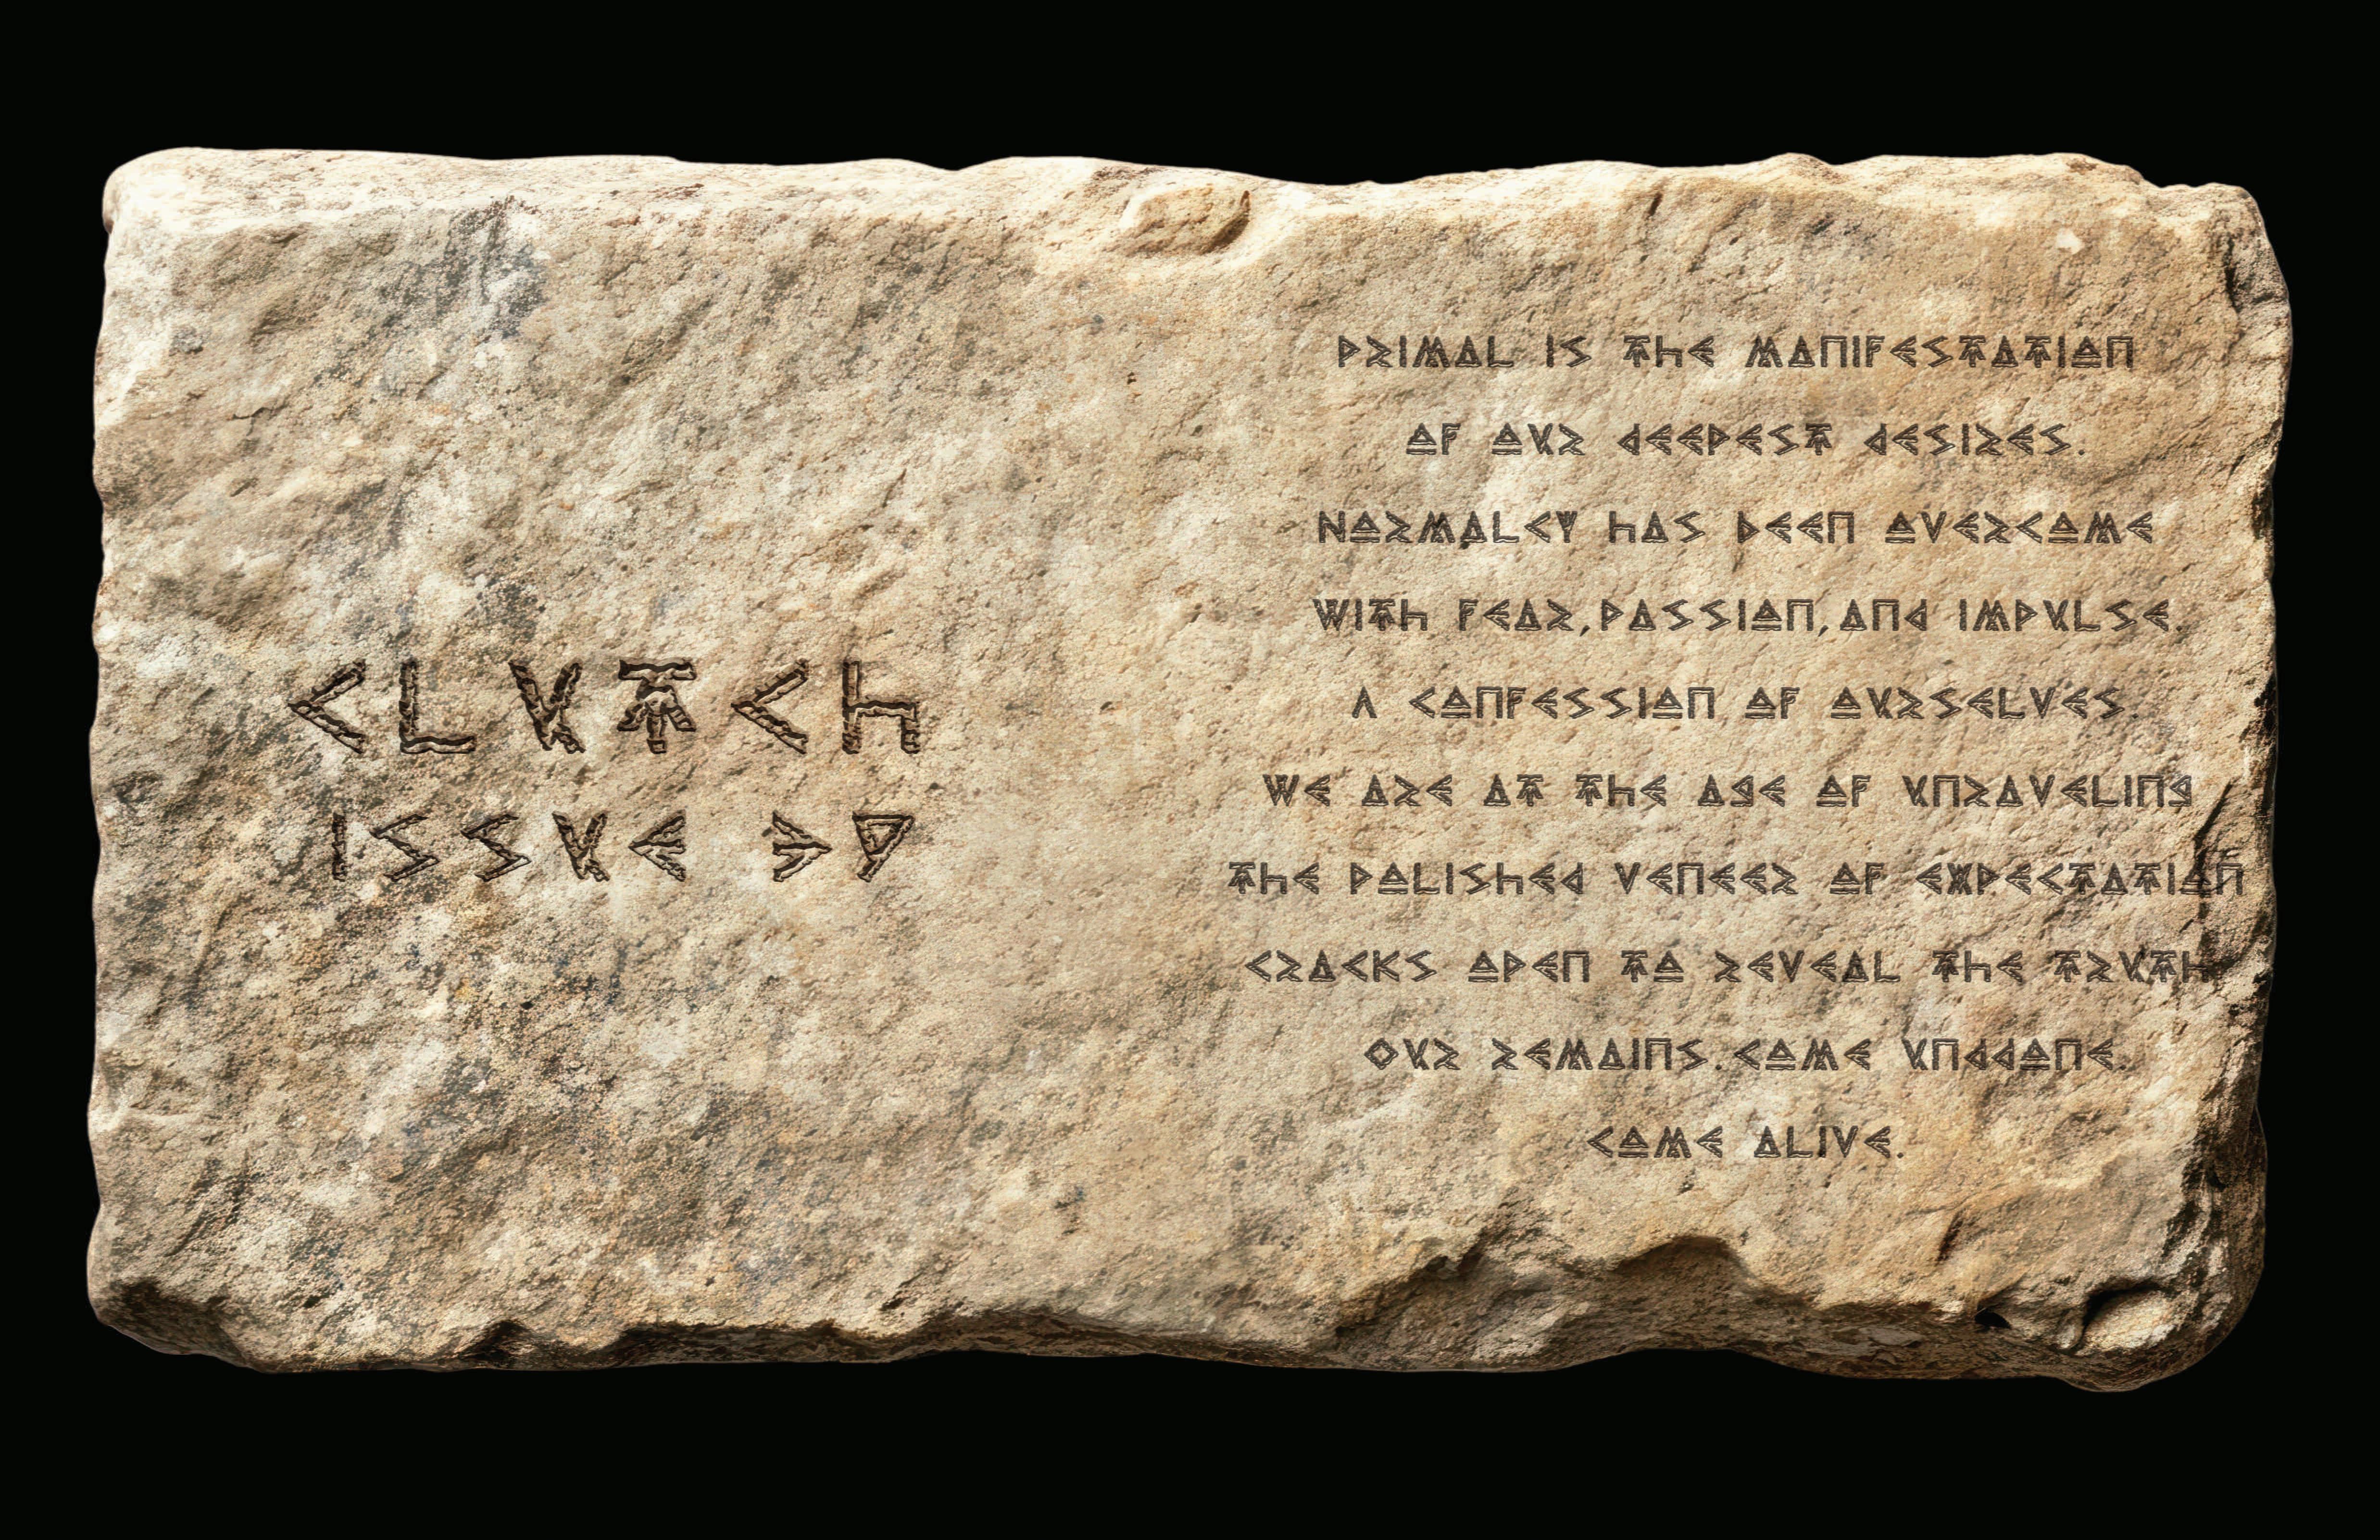 CLUTCH
ISSUE 39
PRIMAL IS THE MANIFESTATION
OF OUR DEEPEST DESIRES.
NORMALCY HAS BEEN OVERCOME
WITH FEAR, PASSION, AND IMPULSE.
A CONFESSION OF OURSELVES.
WE ARE AT THE AGE OF UNRAVELING
THE POLISHED VENEER OF EXPECTATION
CRACKS OPEN TO REVEAL THE TRUTH
OUR REMAINS. COME UNDDONE.
COME ALIVE.